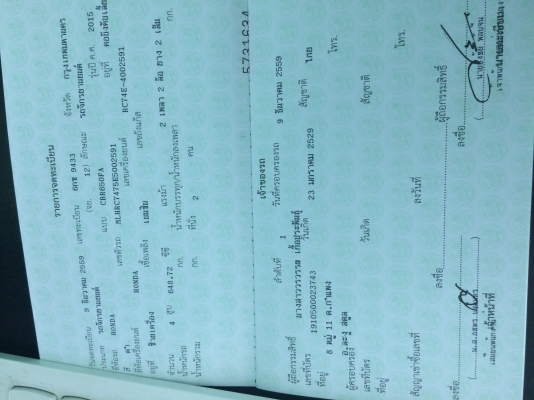 รายการจดทะเบียน
วันจดทะเบียน 9 ธันวาคม 2559 เลขทะเบียน 6กช 9433 จังหวัด กรุงเทพมหานคร
ประเภท รถจักรยานยนต์ (รย. 12) ลักษณะ รถจักรยานยนต์
ยี่ห้อรถ HONDA แบบ CBR650FA รุ่นปี ค.ศ. 2015
สี ดำ เลขตัวรถ MLHRC7475E5002591 อยู่ที่ คอบังคับเลี้ยว
ยี่ห้อเครื่องยนต์ HONDA เลขเครื่องยนต์ RC74E-4002591
อยู่ที่ เชื้อเพลิง เบนซิน เลขถังแก๊ส
จำนวน 4 สูบ 648.72 ซีซี แรงม้า 2 เพลา 2 ล้อ ยาง 2 เส้น
น้ำหนักรถ กก. น้ำหนักบรรทุก/น้ำหนักลงเพลา กก.
น้ำหนักรวม กก. ที่นั่ง 2 คน
5731634
เจ้าของรถ
ลำดับที่ 1 วันที่ครอบครองรถ 9 ธันวาคม 2559
ผู้ถือกรรมสิทธิ์
เลขที่บัตร 1910500023743 วันเกิด 23 มกราคม 2529 สัญชาติ ไทย
ที่อยู่ 8 หมู่ 11 ต.กำแพง โทร.
อ.ละงู สตูล
ผู้ครอบครอง
เลขที่บัตร วันเกิด สัญชาติ
ที่อยู่ โทร.
สัญญาเช่าซื้อเลขที่ ลงวันที่
ลงชื่อ ผู้ถือกรรมสิทธิ์
ลงชื่อ ลงชื่อ